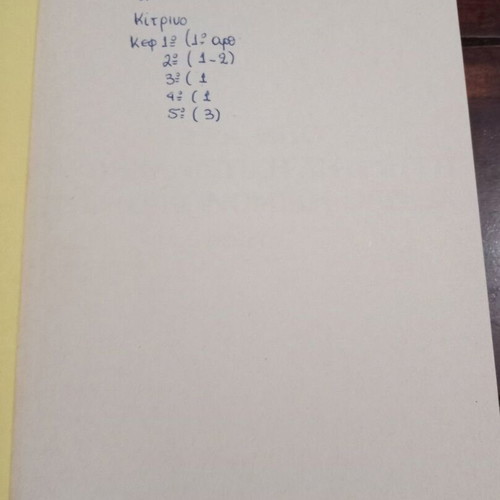 Κίτρινο
Κεφ 1º (1º αρθ
2º (1-2)
3º (1
4º (1
5º (3)